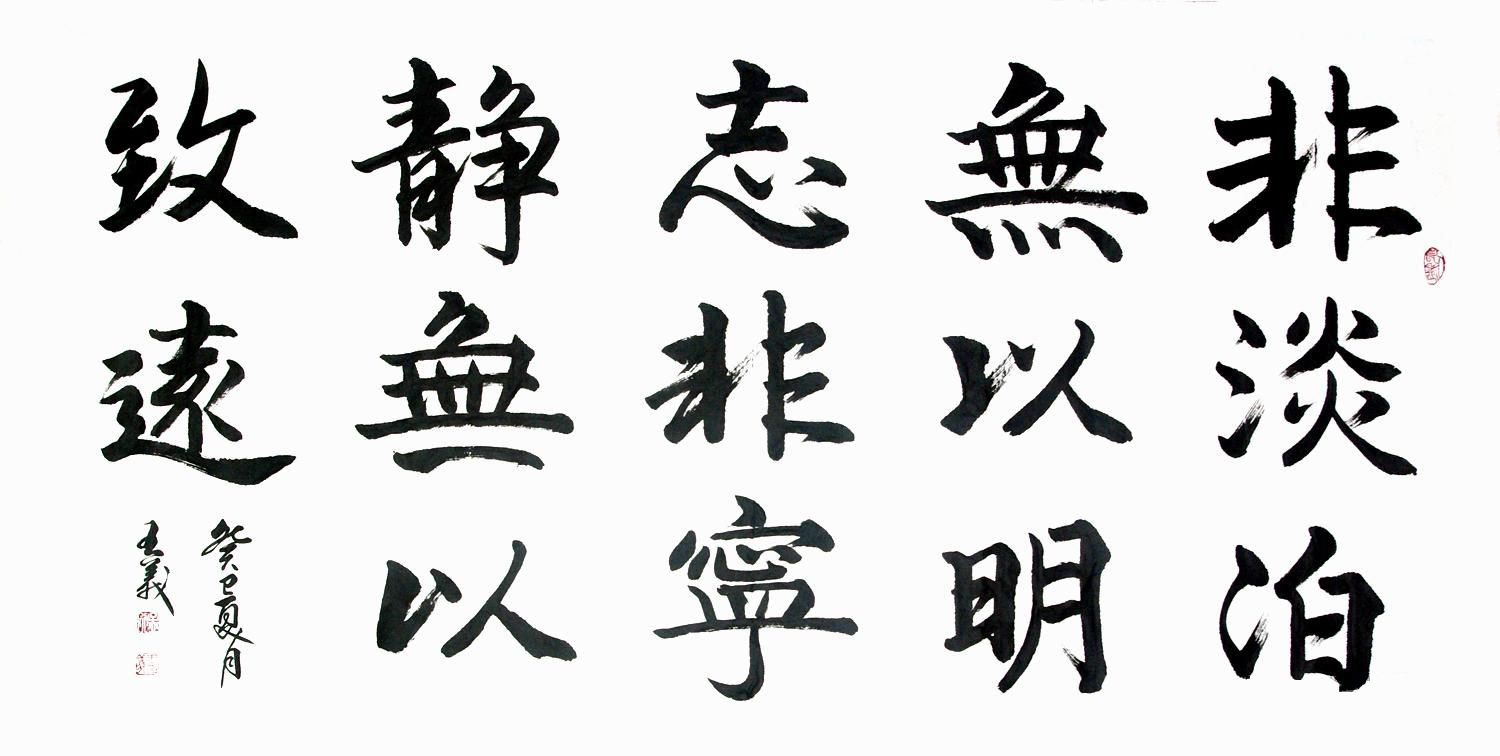 非淡泊
無以明
志非寧
靜無以
致遠
癸巳夏月
玉義